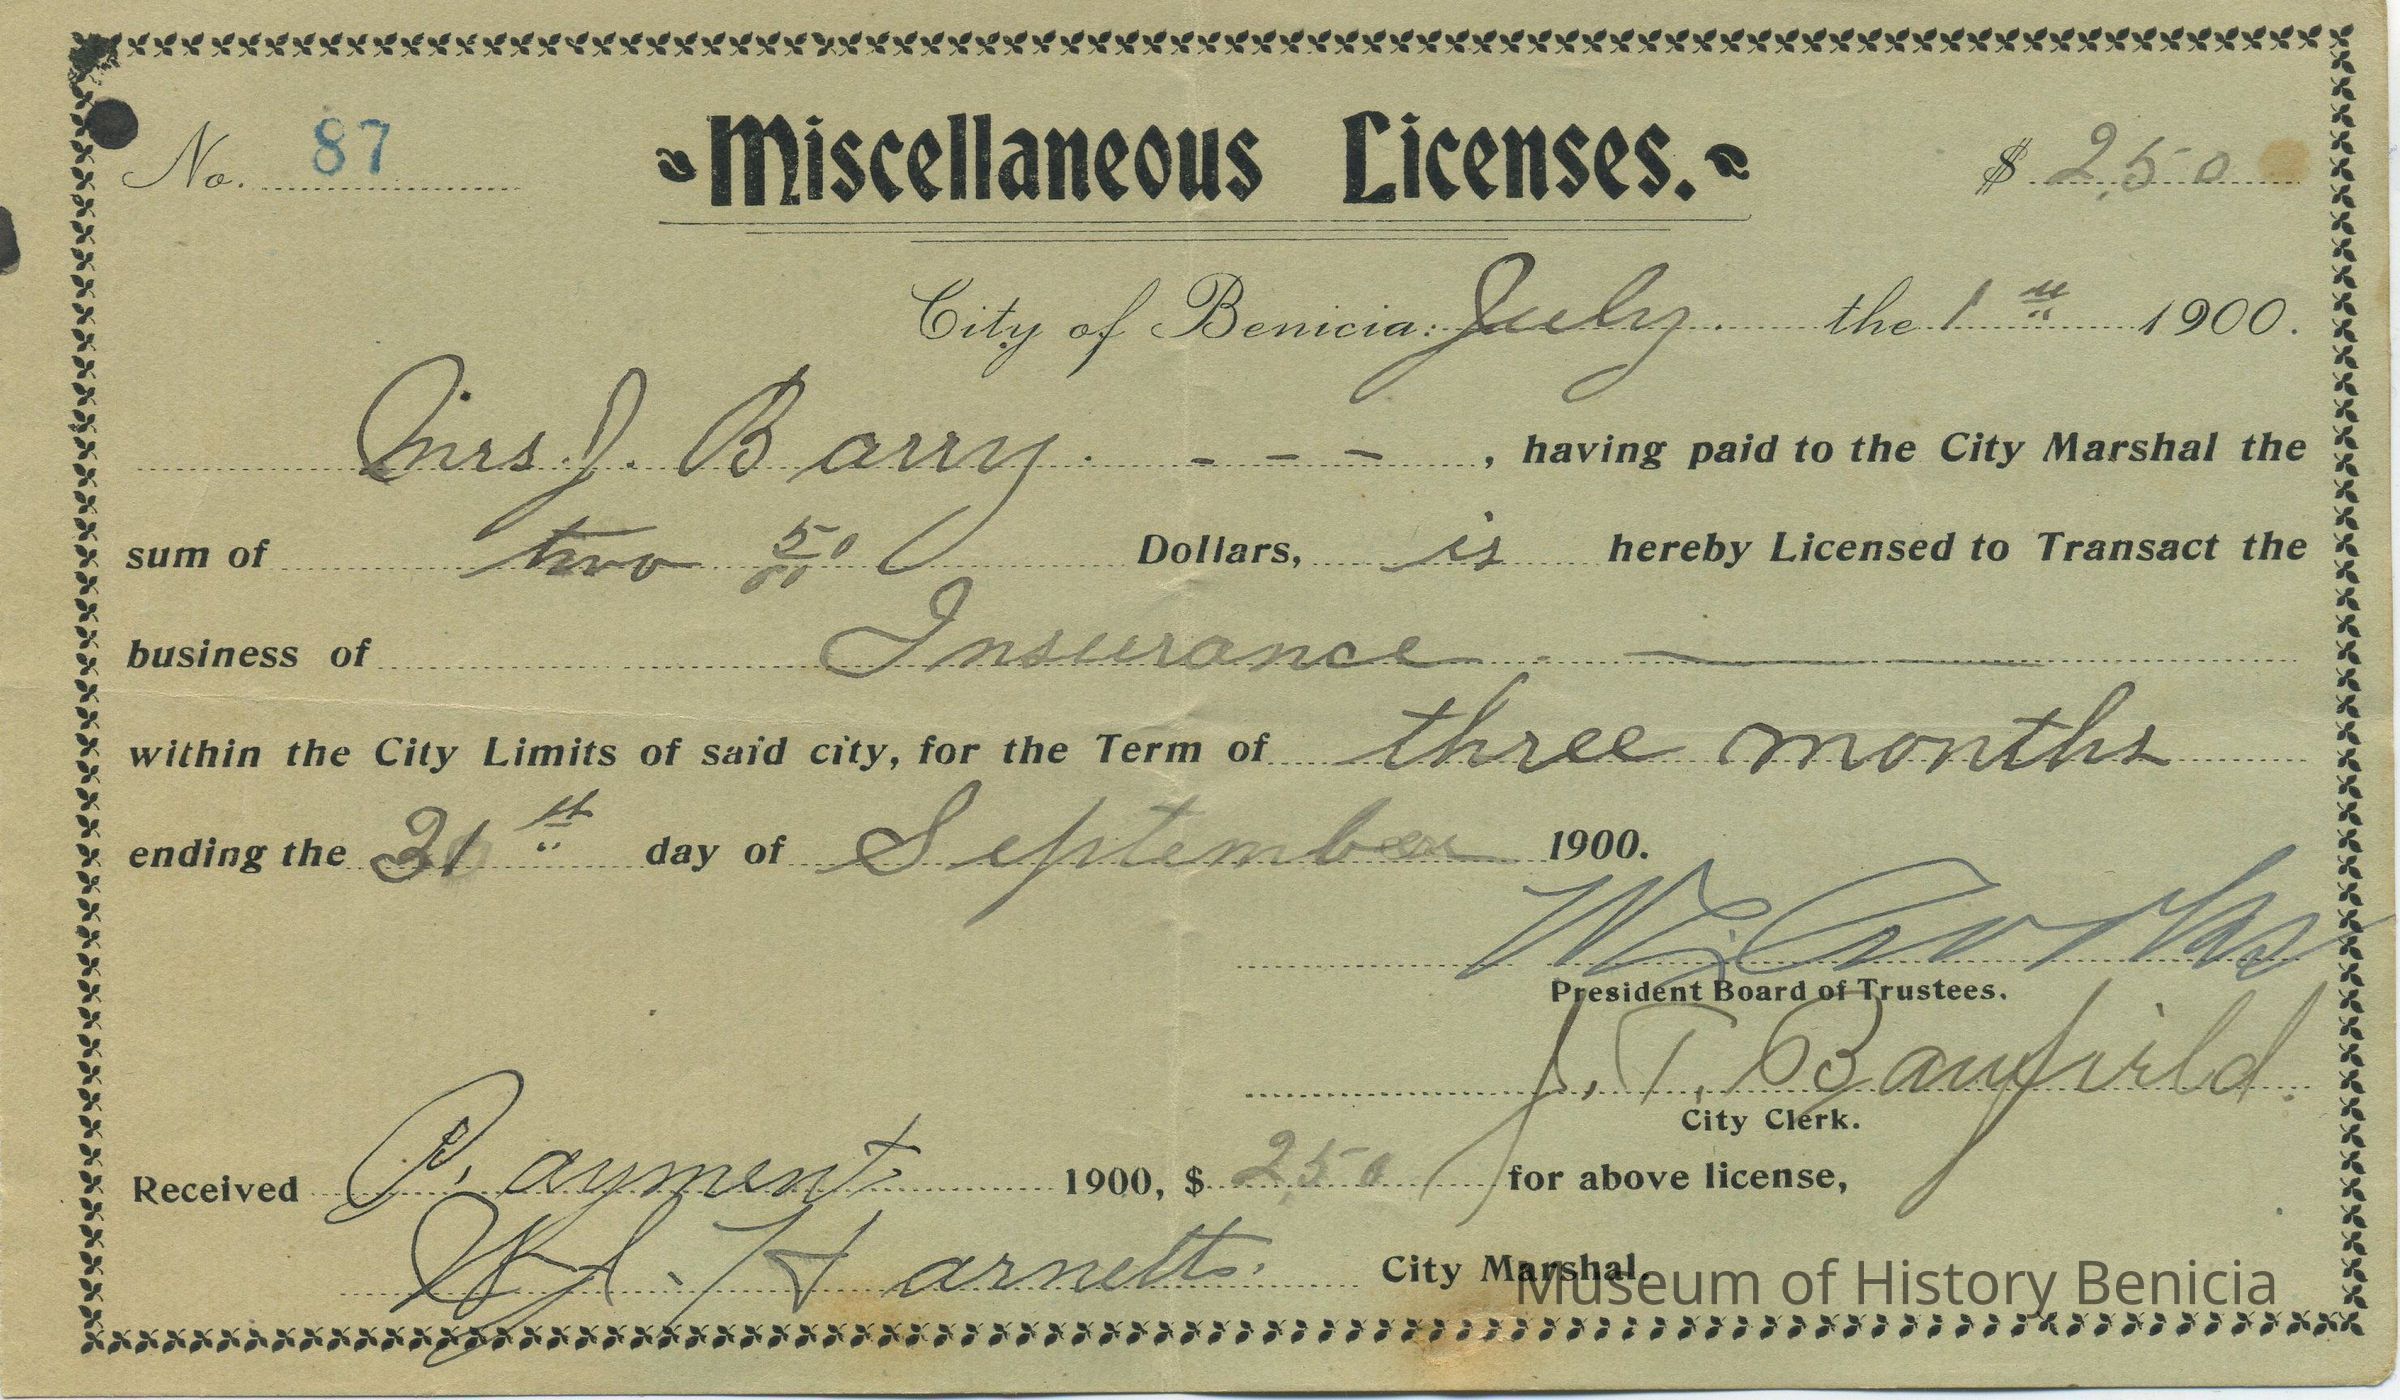 No. 87 Miscellaneous Licenses. $ 2.50
City of Benicia: July the 1st 1900.
Mrs. J. Barry. - - - , having paid to the City Marshal the
sum of two 50/00 Dollars, is hereby Licensed to Transact the
business of Insurance
within the City Limits of said city, for the Term of three months
ending the 31st day of September 1900.
W.
President Board of Trustees.
J. T. Banfield.
City Clerk.
Received Payment 1900, $ 2.50 for above license,
Harnett. City Marshal.
Museum of History Benicia